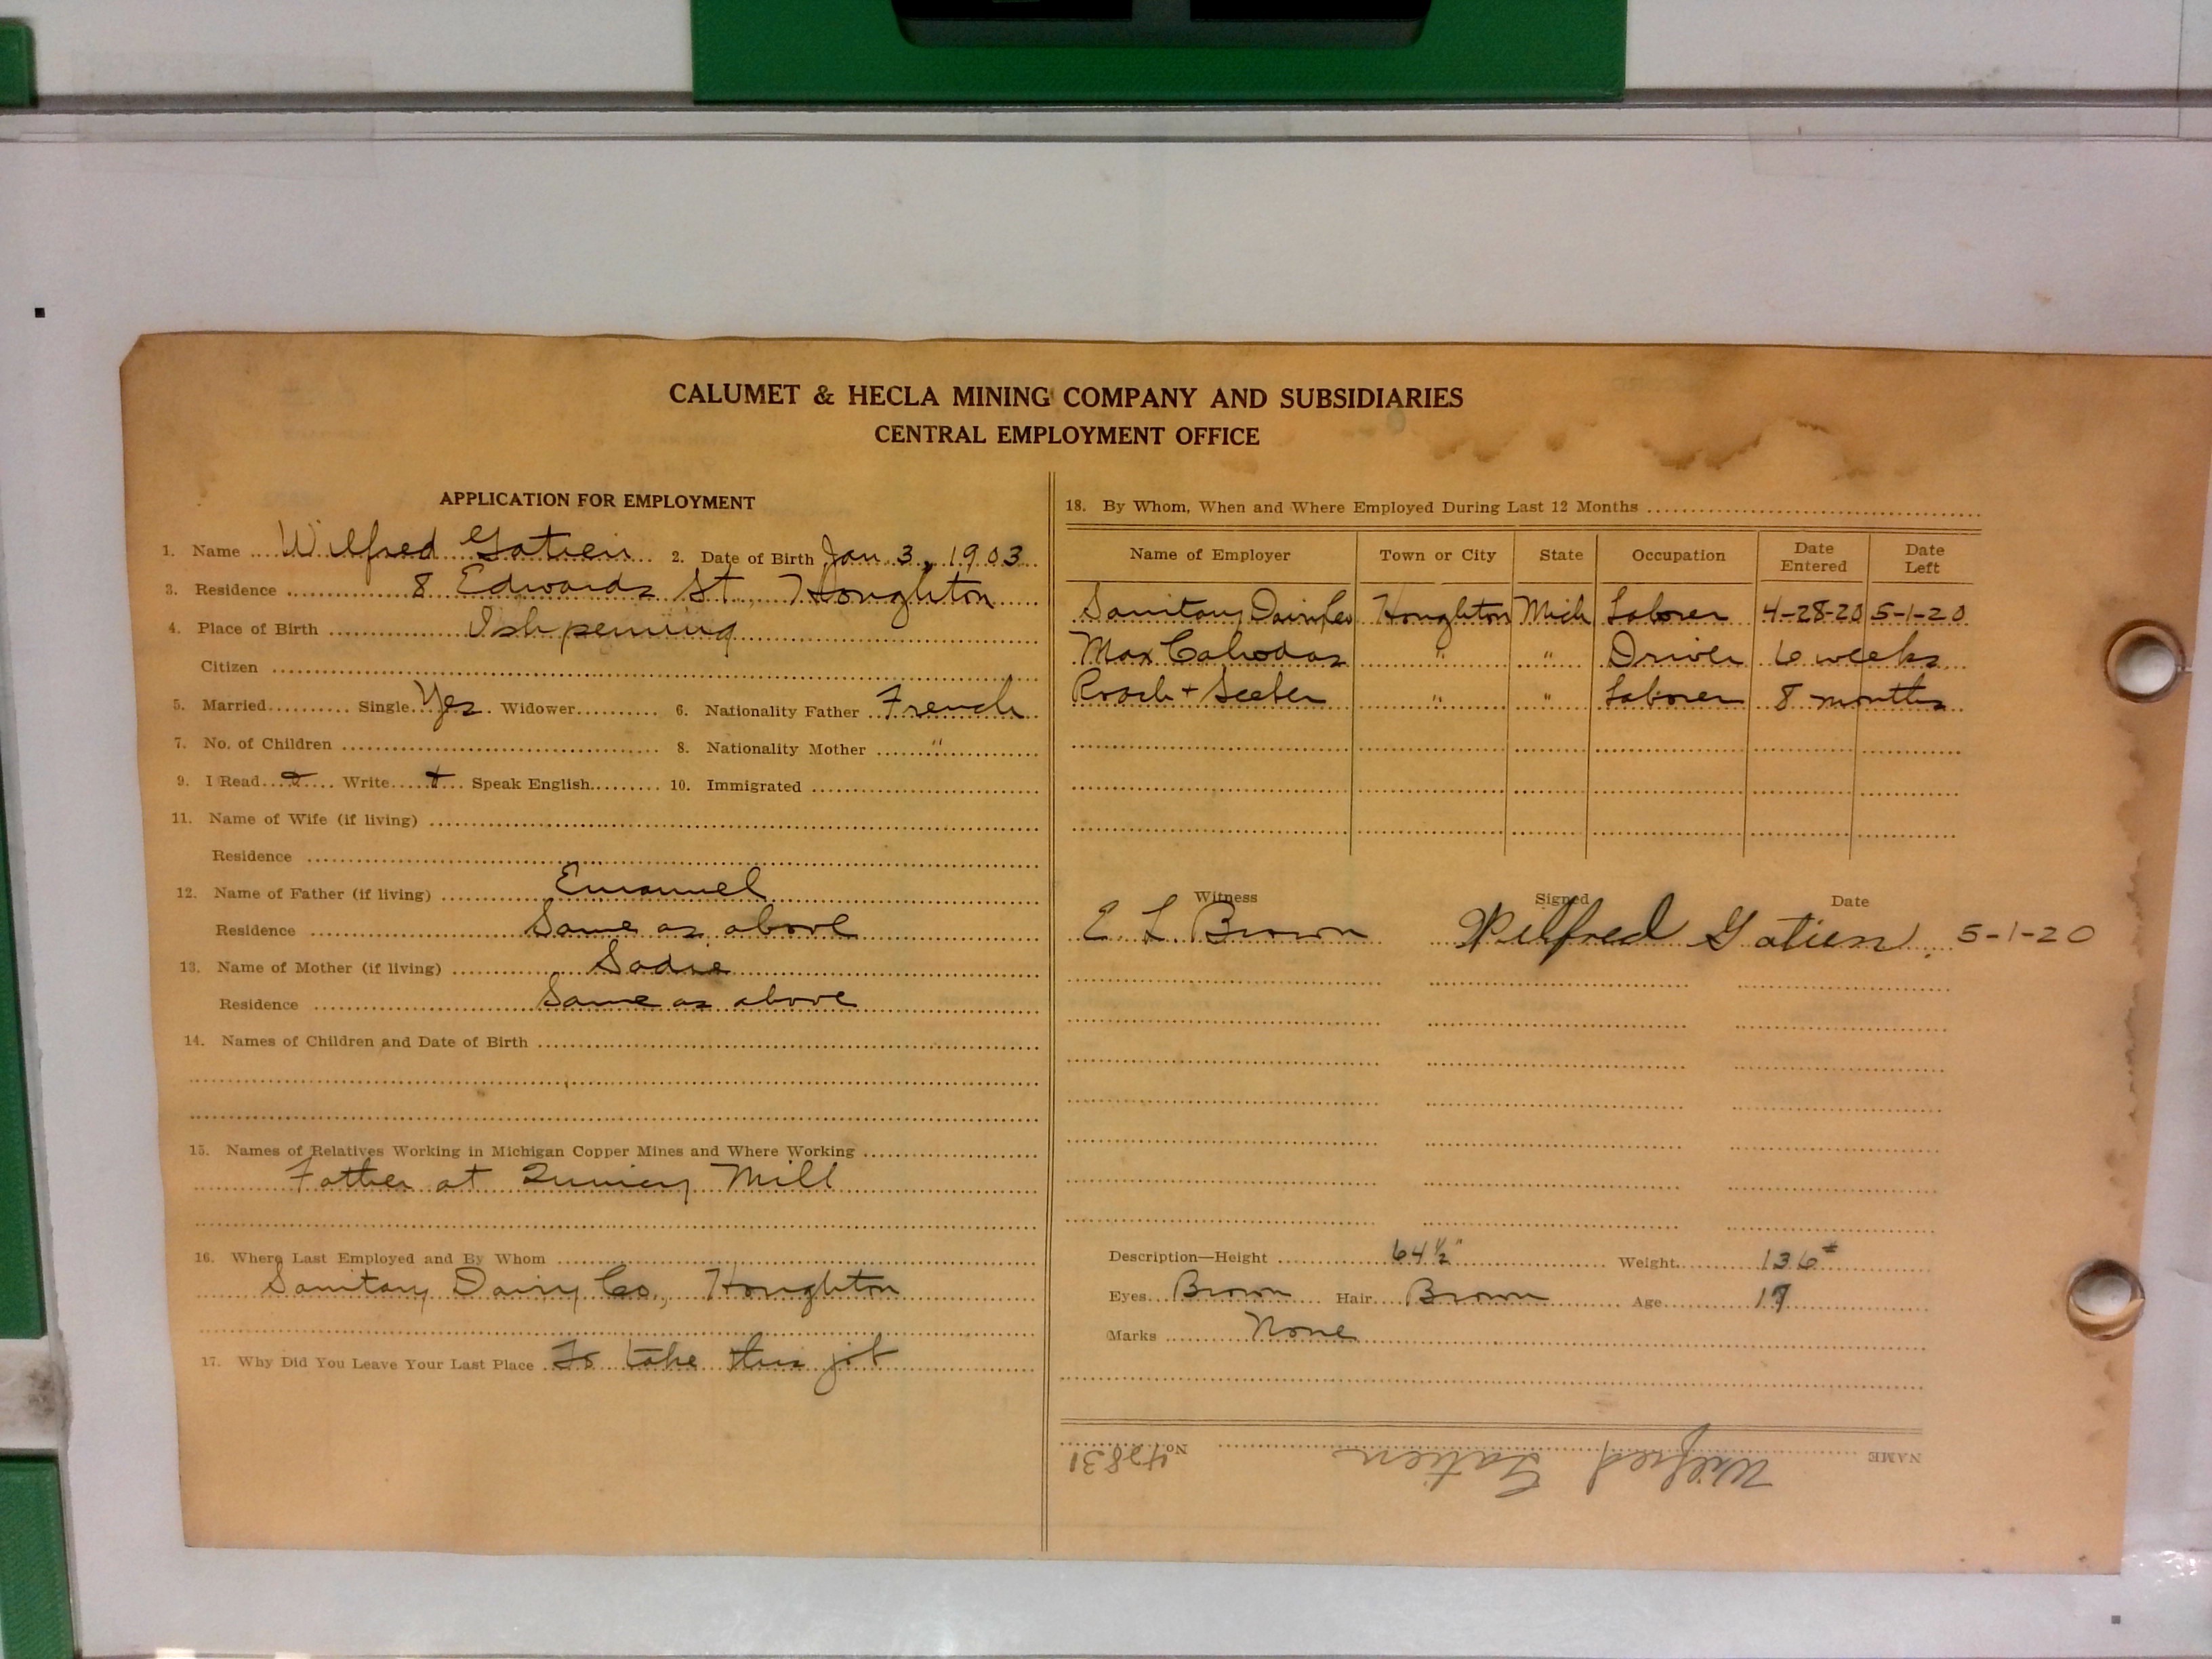 CALUMET & HECLA MINING COMPANY AND SUBSIDIARIES
CENTRAL EMPLOYMENT OFFICE
APPLICATION FOR EMPLOYMENT
1. Name Wilfred Gatien 2. Date of Birth Jan 3, 1903
3. Residence 8 Edwards St., Houghton
4. Place of Birth Ishpeming
Citizen
5. Married Single Yes Widower 6. Nationality Father French
7. No. of Children 8. Nationality Mother "
9. I Read Write Speak English 10. Immigrated
11. Name of Wife (if living)
Residence
12. Name of Father (if living) Emanuel
Residence Same as above
13. Name of Mother (if living) Sadie
Residence Same as above
14. Names of Children and Date of Birth
15. Names of Relatives Working in Michigan Copper Mines and Where Working
Father at Quincy Mill
16. Where Last Employed and By Whom
Sanitary Dairy Co., Houghton
17. Why Did You Leave Your Last Place To take this job
18. By Whom, When and Where Employed During Last 12 Months
Name of Employer Town or City State Occupation Date Entered Date Left
Sanitary Dairy Co Houghton Mich Laborer 4-28-20 5-1-20
Max " " Driver 6 weeks
Roach + Seeber " " Laborer 8 months
Witness Signed Date
E. L. Brown Wilfred Gatien 5-1-20
Description—Height 64 1/2" Weight 136#
Eyes Brown Hair Brown Age 17
Marks None
NAME Wilfred Gatien No. 42831